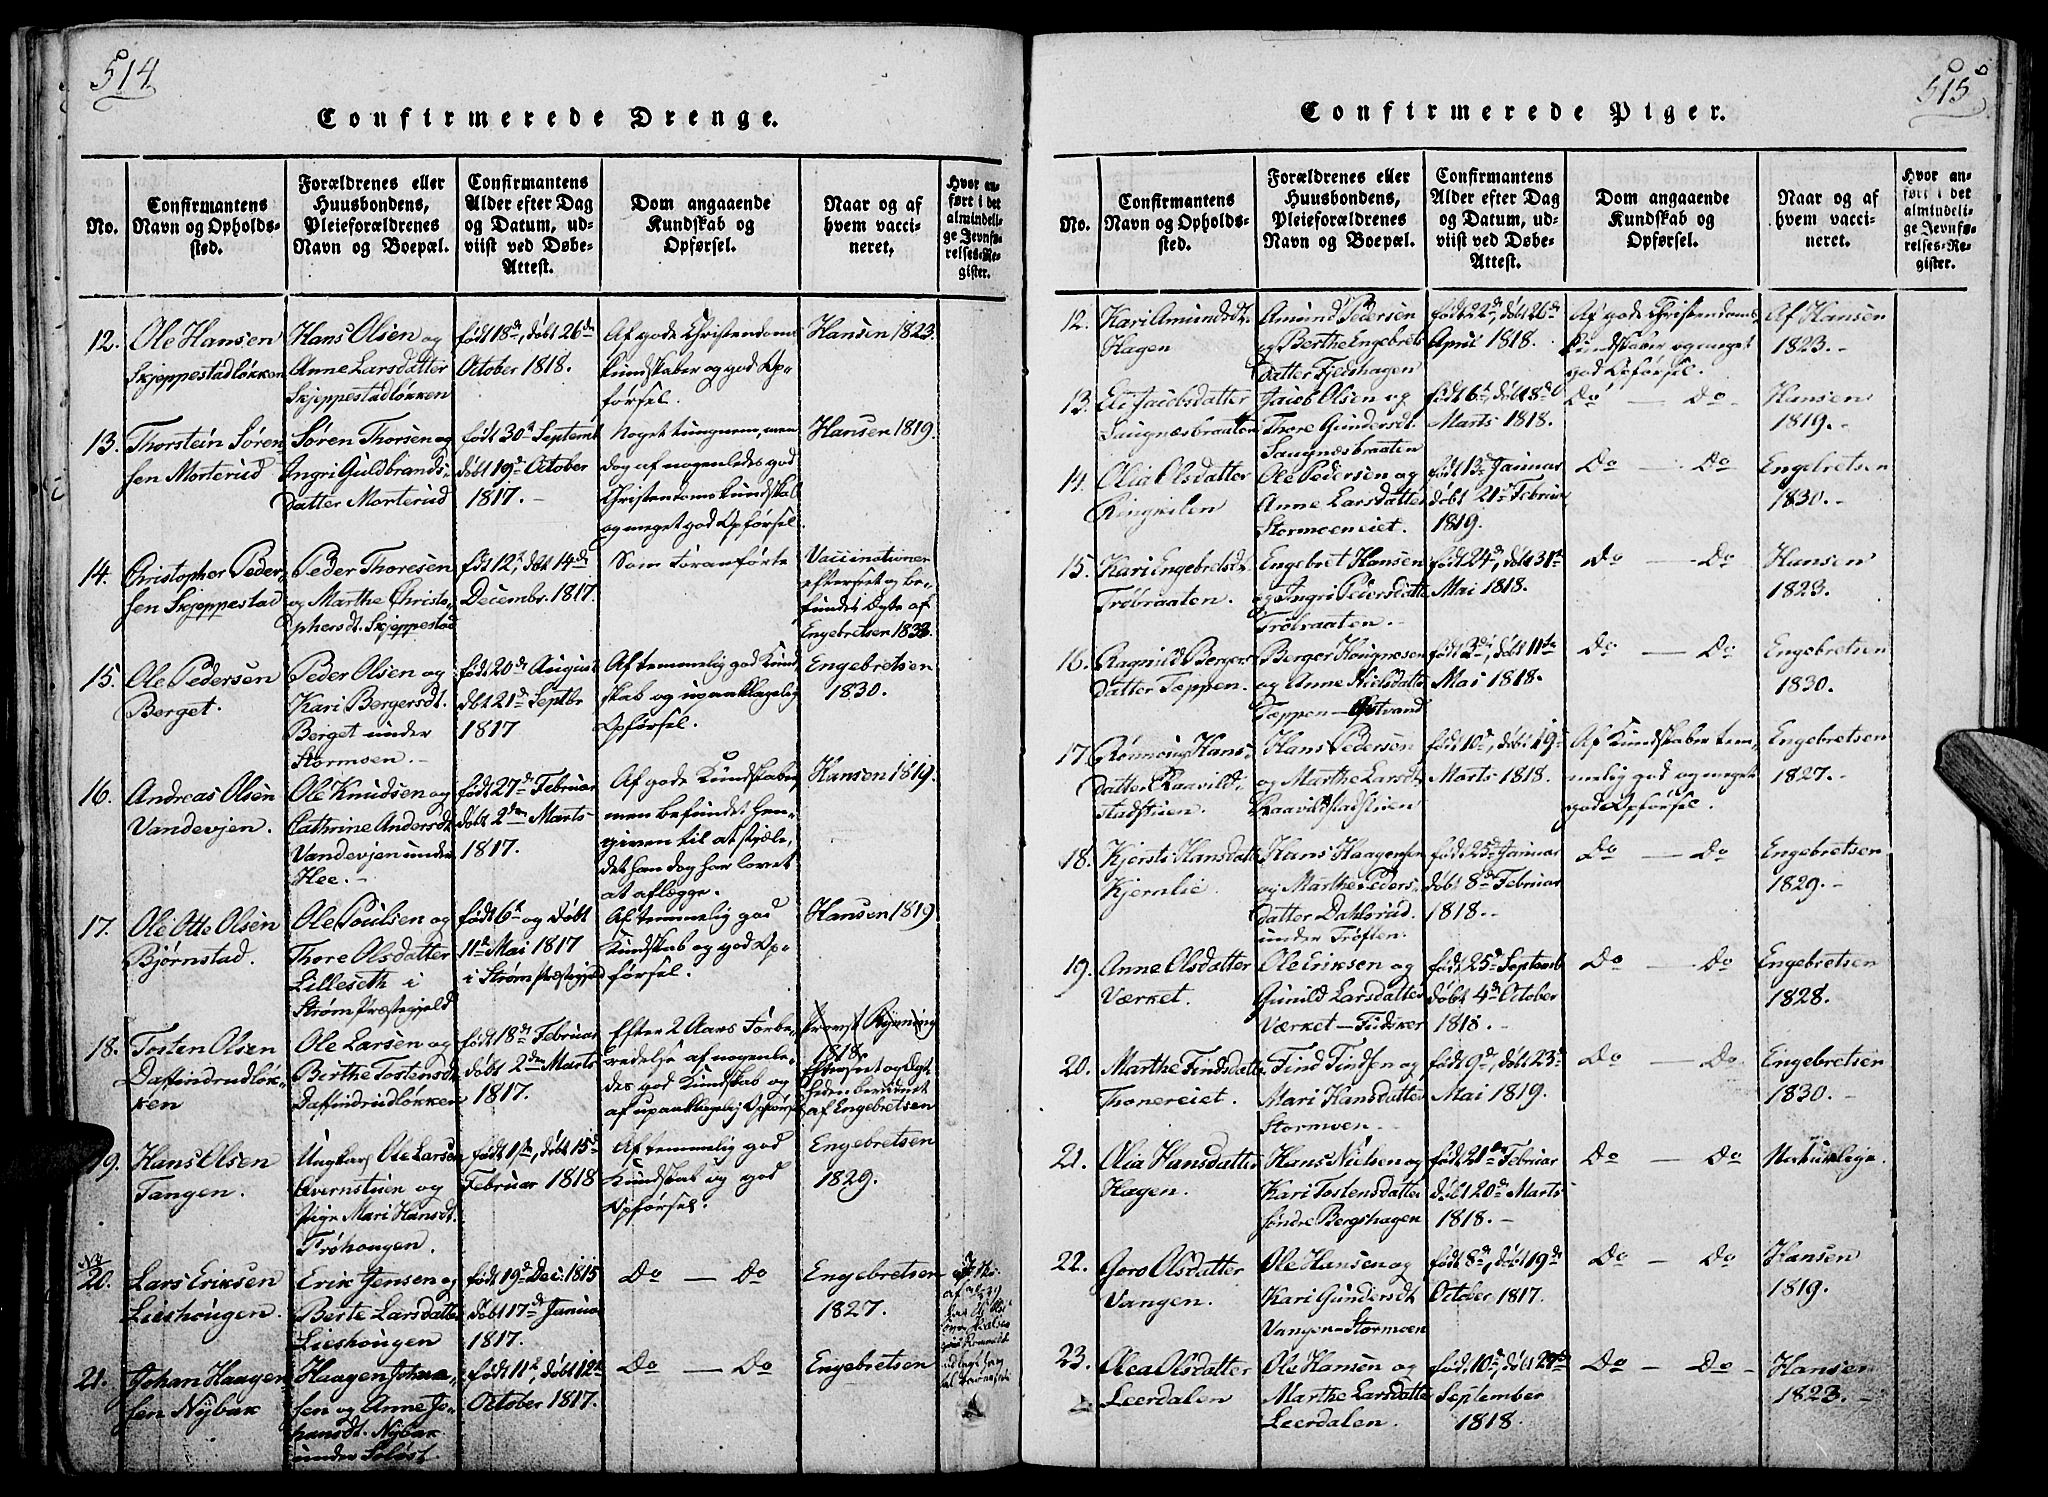 514
Confirmerede Drenge.
No.
Confirmantens Navn og Opholds-sted.
Forældrenes eller Huusbondens, Pleieforældrenes Navn og Boepæl.
Confirmantens Alder efter Dag og Datum, ud-viist ved Døbe-Attest.
Dom angaaende Kundskab og Opførsel.
Naar og af hvem vacci-neret.
Hvor an-ført i det almindeli-ge Jevnfø-relses-Re-gister.
12.
Ole Hansen
Skjeppestadløkken
Hans Olsen og
Anne Larsdatter
Skjeppestadløkken
født 18de, døbt 26de
October 1818.
Af gode Christendoms
kundskaber og god Op-
førsel.
Hansen 1823.
13.
Thorstein Søren
sen Morterud
Søren Thorsen og
Ingri Guldbrands-
datter Morterud
født 30te Septemb
døbt 19de October
1817. -
Noget tungnem, men
dog af nogenledes god
Christendomskundskab
og meget god Opførsel
Hansen 1819.
14.
Christopher Peder-
sen Skjeppestad
Peder Thoresen
og Marthe Christo-
phersdt. Skjeppestad
født 12te, døbt 14de
Decembr. 1817.
Som foranførte
Vaccinationen
efterseet og be-
fundet Ægte af
Engebretsen
15.
Ole Pedersen
Berget.
Peder Olsen og
Kari Bergersdt.
Berget under
Stormoen. -
født 20de August
døbt 21de Septbr
1817
Af temmelig god Kund
skab og upaaklagelig
Opførsel.
Engebretsen
1830.
16.
Andreas Olsen
Vandevjen.
Ole Knudsen og
Cathrine Andersdt.
Vandevjen under
Hee. -
født 27de Februar
døbt 2den Marts
1817.
Af gode Kundskaber,
men befundet hen-
given til at stjæle,
det han dog har lovet
at aflægge.
Hansen 1819.
17.
Ole Otte Olsen
Bjørnstad.
Ole Poulsen og
Thore Olsdatter
Lilleseth i
Strøm Præstegjeld
født 6te og døbt
11te Mai 1817
i Strøm Præstegjeld
Af temmelig god
Kundskab og god Op-
førsel.
Hansen 1819
18.
Tosten Olsen
Daffindrudløk-
ken
Ole Larsen og
Birthe Tostensdt.
Daffindrudløkken
født 18de Februar
døbt 2den Marts
1817.
Efter 2 Aars Forbe-
redelse af nogenle-
des god Kundskab og
af upaaklagelig Opførsel
Provst Rynning
1818.
Efterseet og Ægt-
heden bevidnet
af Engebretsen
19.
Hans Olsen
Tangen.
Ungkarl Ole Larsen
Evernstuen og
Pige Mari Hansdt.
Trøhougen.
født 1ste, døbt 15de
Februar 1818
Af temmelig god
Kundskab og god
Opførsel.
Engebretsen
1829.
20.
Lars Eriksen
Lieshougen.
Erik Jensen og
Berte Larsdatter
Lieshougen
født 19de Dec. 1815
døbt 17de Januar
1817.
Do — Do
Engebretsen
1827.
21.
Johan Haagen-
sen Nybak
Haagen Johna-
sen og Anne Jo-
hansdt. Nybak
under Soløst
født 11te, døbt 12te
October 1817.
Do — Do
Engebretsen
515
Confirmerede Piger.
No.
Confirmantens Navn og Opholds-sted.
Forældrenes eller Huusbondens, Pleieforældrenes Navn og Boepæl.
Confirmantens Alder efter Dag og Datum, ud-viist ved Døbe-Attest.
Dom angaaende Kundskab og Opførsel.
Naar og af hvem vacci-neret.
Hvor an-ført i det almindeli-ge Jevnfø-relses-Re-gister.
12.
Kari Amundsdt.
Hagen
Amund Pedersen
og Berthe Engebrets
datter Fjeldhagen
født 22de, døbt 26de
April 1818.
Af gode Christendoms
kundskaber og meget
god Opførsel.
Af Hansen
1823. -
13.
Eli Jacobsdatter
Saugnæsbraaten
Jacob Olsen og
Thore Gundersdt.
Saugnæsbraaten
født 6te, døbt 8de
Marts 1818.
Do — Do
Hansen
1819. -
14.
Olia Olsdatter
Ringkilen
Ole Pedersen og
Anne Larsdatter
Stormoeneiet.
født 13de Januar
døbt 21de Februar
1819.
Do — Do
Engebretsen
1830. -
15.
Kari Engebretsdt.
Trøbraaten.
Engebret Hansen
og Ingri Pedersdatter
Trøbraaten. -
født 24de, døbt 31te
Mai 1818.
Do — Do
Hansen
1823. -
16.
Ragnild Bergers
datter Tæppen.
Berger Haagensen
og Anne Nielsdatter
Tæppen —
født 2de, døbt 11te
Mai 1818.
Do — Do
Engebretsen
1830. -
17.
Rønnoug Hans-
datter Raavild-
stadstuen
Hans Pedersen
og Marthe Larsdt.
Raavildstadstuen
født 10de, døbt 19de
Marts 1818.
Af Kundskaber tem-
melig god og meget
god Opførsel.
Engebretsen
1827. -
18.
Kjersti Hansdatter
Kjernlie.
Hans Haagensen
og Marthe Peders-
datter Dahlsrud
under Trøften.
født 25de Januar
døbt 8de Februar
1818. -
Do — Do
Engebretsen
1829. -
19.
Anne Olsdatter
Værket.
Ole Eriksen og
Gunild Larsdatter
Værket — Fudsker
født 25de Septemb
døbt 4de October
1818. -
Do — Do
Engebretsen
1828.
20.
Marthe Findsdatter
Thonereiet.
Find Findsen og
Mari Hansdatter
Stormoen. -
født 9de, døbt 23de
Mai 1819.
Do — Do
Engebretsen
1830. -
21.
Olia Hansdatter
Hagen.
Hans Nielsen og
Kari Tostensdatter
søndre Bergshagen
født 21de Februar
døbt 20de Marts
1818. -
Do — Do
22.
Goro Olsdatter
Vangen.
Ole Hansen og
Kari Gundersdt.
Vangen-Stormoen
født 8de, døbt 19de
October 1817.
Do — Do
Hansen
1819.
23.
Olea Olsdatter
Leerdalen
Ole Hansen og
Marthe Larsdatter
Leerdalen.
født 10de, døbt 27de
September
1818.
Do — Do -
Hansen
1823. -